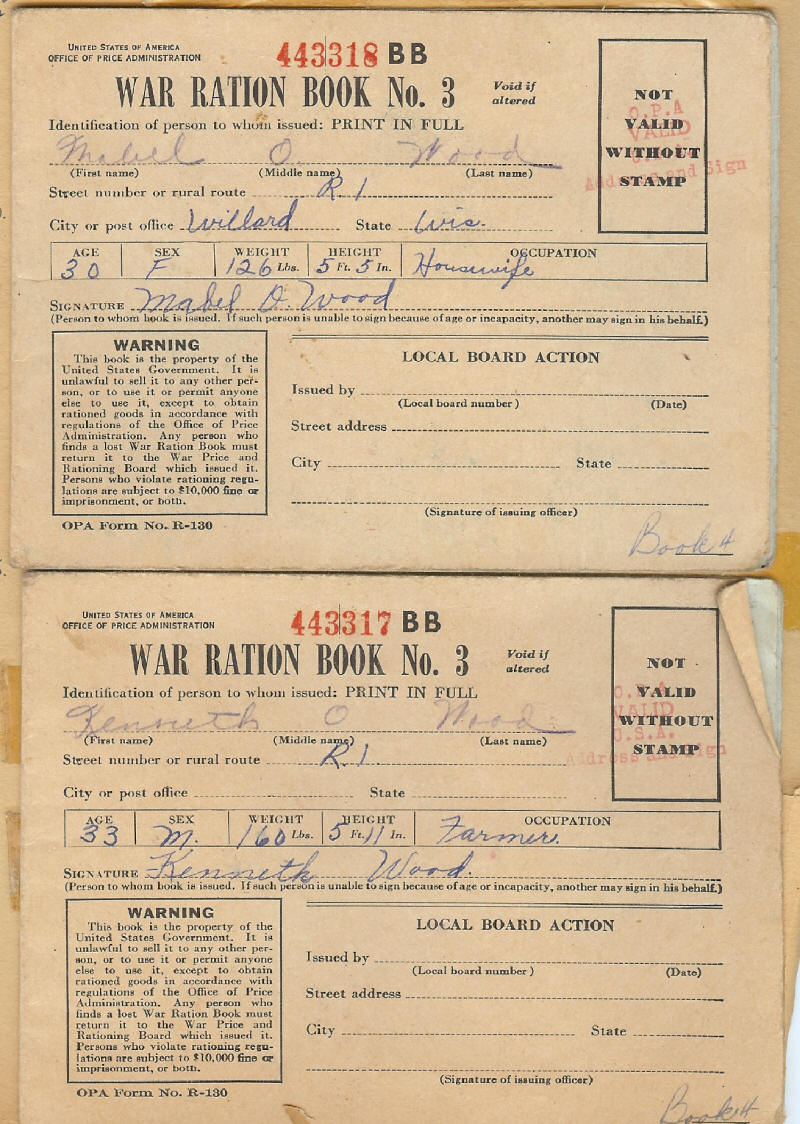 UNITED STATES OF AMERICA
OFFICE OF PRICE ADMINISTRATION
443318 BB
WAR RATION BOOK No. 3
Void if
altered
Identification of person to whom issued: PRINT IN FULL
Mabel O. Wood
(First name) (Middle name) (Last name)
Street number or rural route R. 1
City or post office Willard State Wis.
AGE SEX WEIGHT HEIGHT OCCUPATION
30 F 126 Lbs. 5 Ft. 5 In. Housewife
SIGNATURE Mabel O. Wood
(Person to whom book is issued. If such person is unable to sign because of age or incapacity, another may sign in his behalf.)
NOT
VALID
WITHOUT
STAMP
O.P.A
VALID
Address and Sign
WARNING
This book is the property of the
United States Government. It is
unlawful to sell it to any other per-
son, or to use it or permit anyone
else to use it, except to obtain
rationed goods in accordance with
regulations of the Office of Price
Administration. Any person who
finds a lost War Ration Book must
return it to the War Price and
Rationing Board which issued it.
Persons who violate rationing regu-
lations are subject to $10,000 fine or
imprisonment, or both.
OPA Form No. R-130
LOCAL BOARD ACTION
Issued by
(Local board number) (Date)
Street address
City State
(Signature of issuing officer)
Book 4
UNITED STATES OF AMERICA
OFFICE OF PRICE ADMINISTRATION
443317 BB
WAR RATION BOOK No. 3
Void if
altered
Identification of person to whom issued: PRINT IN FULL
Kenneth O Wood
(First name) (Middle name) (Last name)
Street number or rural route R. 1
City or post office State
AGE SEX WEIGHT HEIGHT OCCUPATION
33 M. 160 Lbs. 5 Ft. 11 In. Farmer.
SIGNATURE Kenneth Wood.
(Person to whom book is issued. If such person is unable to sign because of age or incapacity, another may sign in his behalf.)
NOT
VALID
WITHOUT
STAMP
O.P.A
VALID
U.S.A.
Address and Sign
WARNING
This book is the property of the
United States Government. It is
unlawful to sell it to any other per-
son, or to use it or permit anyone
else to use it, except to obtain
rationed goods in accordance with
regulations of the Office of Price
Administration. Any person who
finds a lost War Ration Book must
return it to the War Price and
Rationing Board which issued it.
Persons who violate rationing regu-
lations are subject to $10,000 fine or
imprisonment, or both.
OPA Form No. R-130
LOCAL BOARD ACTION
Issued by
(Local board number) (Date)
Street address
City State
(Signature of issuing officer)
Book 4